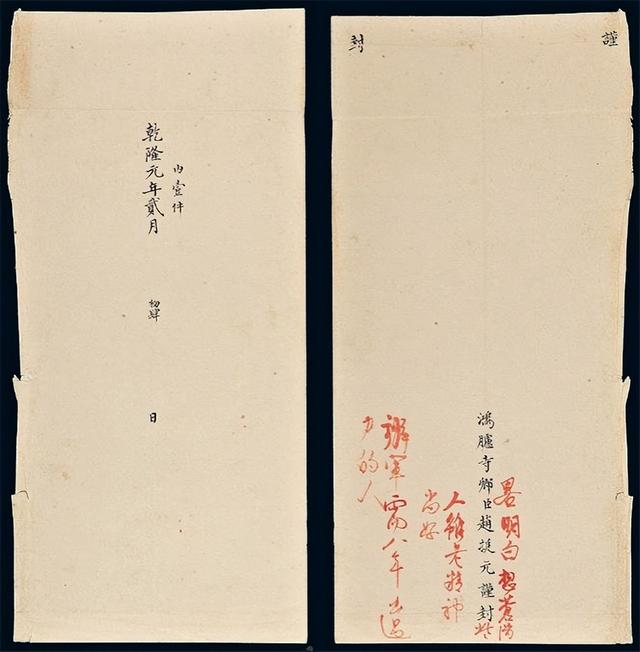 內壹件
乾隆元年貳月 初肆 日
謹
封
畧明白想蒼滑些
鴻臚寺卿臣趙挺元謹封
人雖老精神
尚好
辦軍需八年出過
力的人